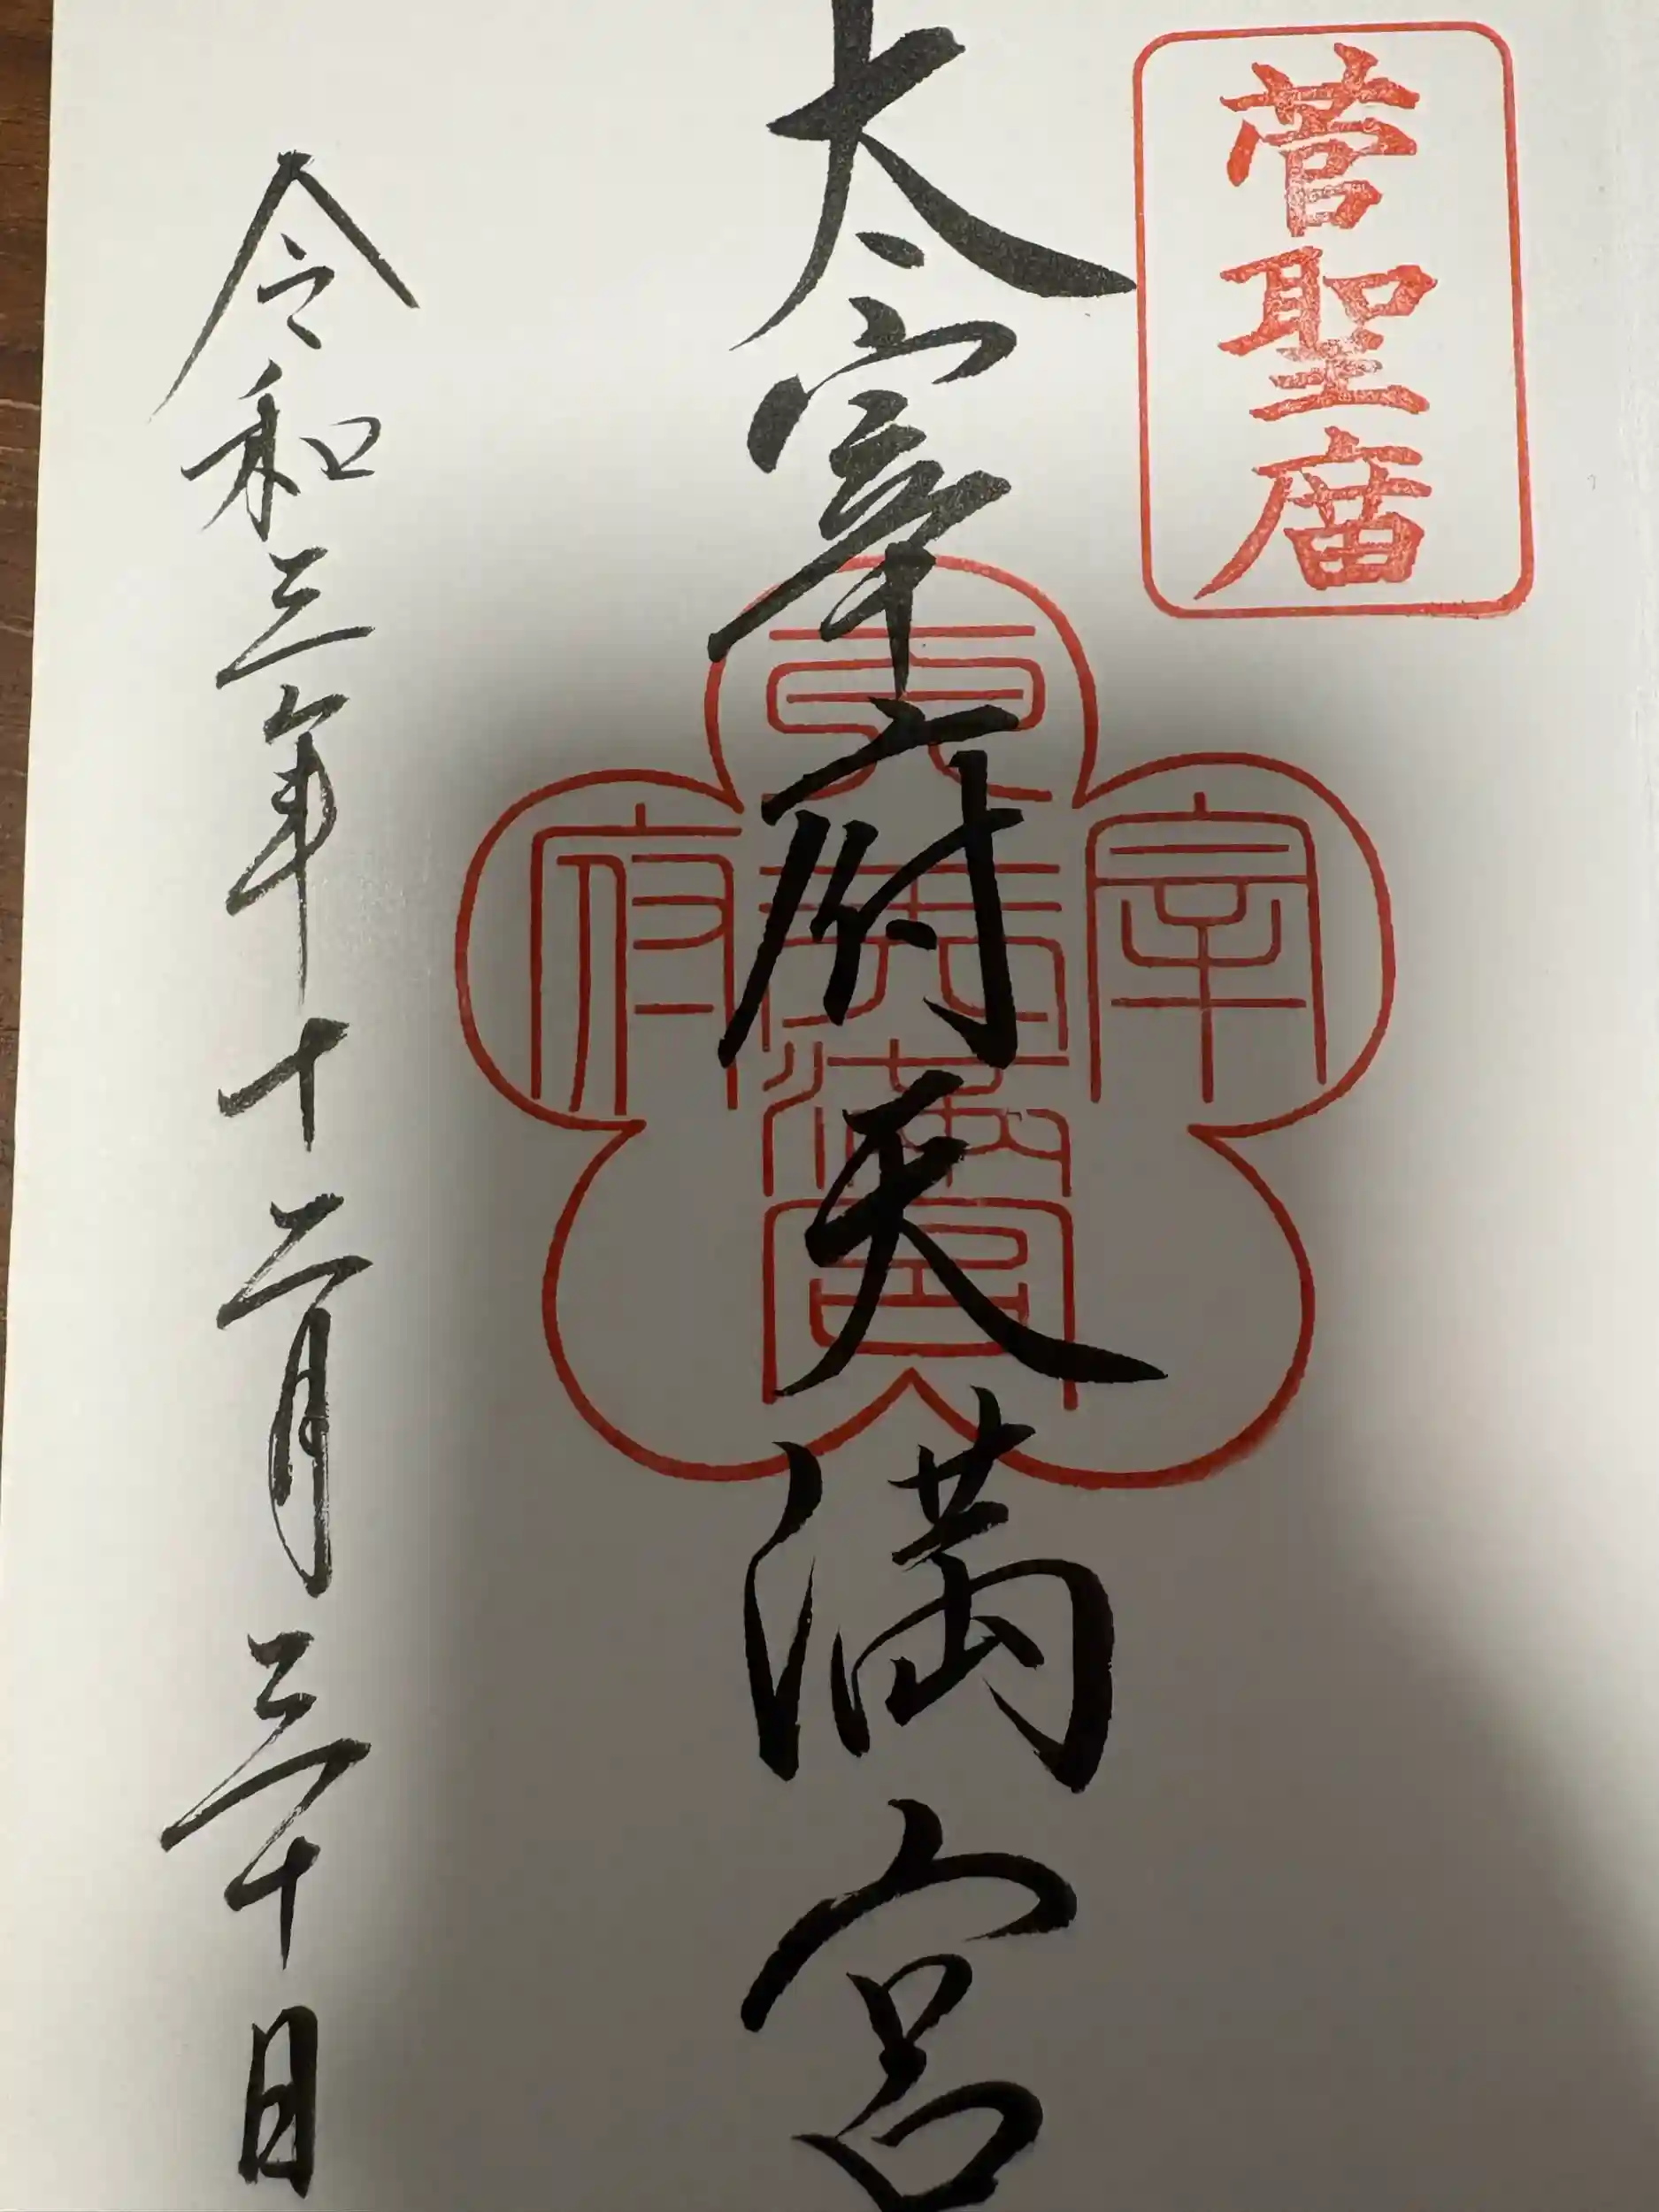 菅聖庿
太宰府天満宮
太宰府
天満宮
令和三年十二月三十日